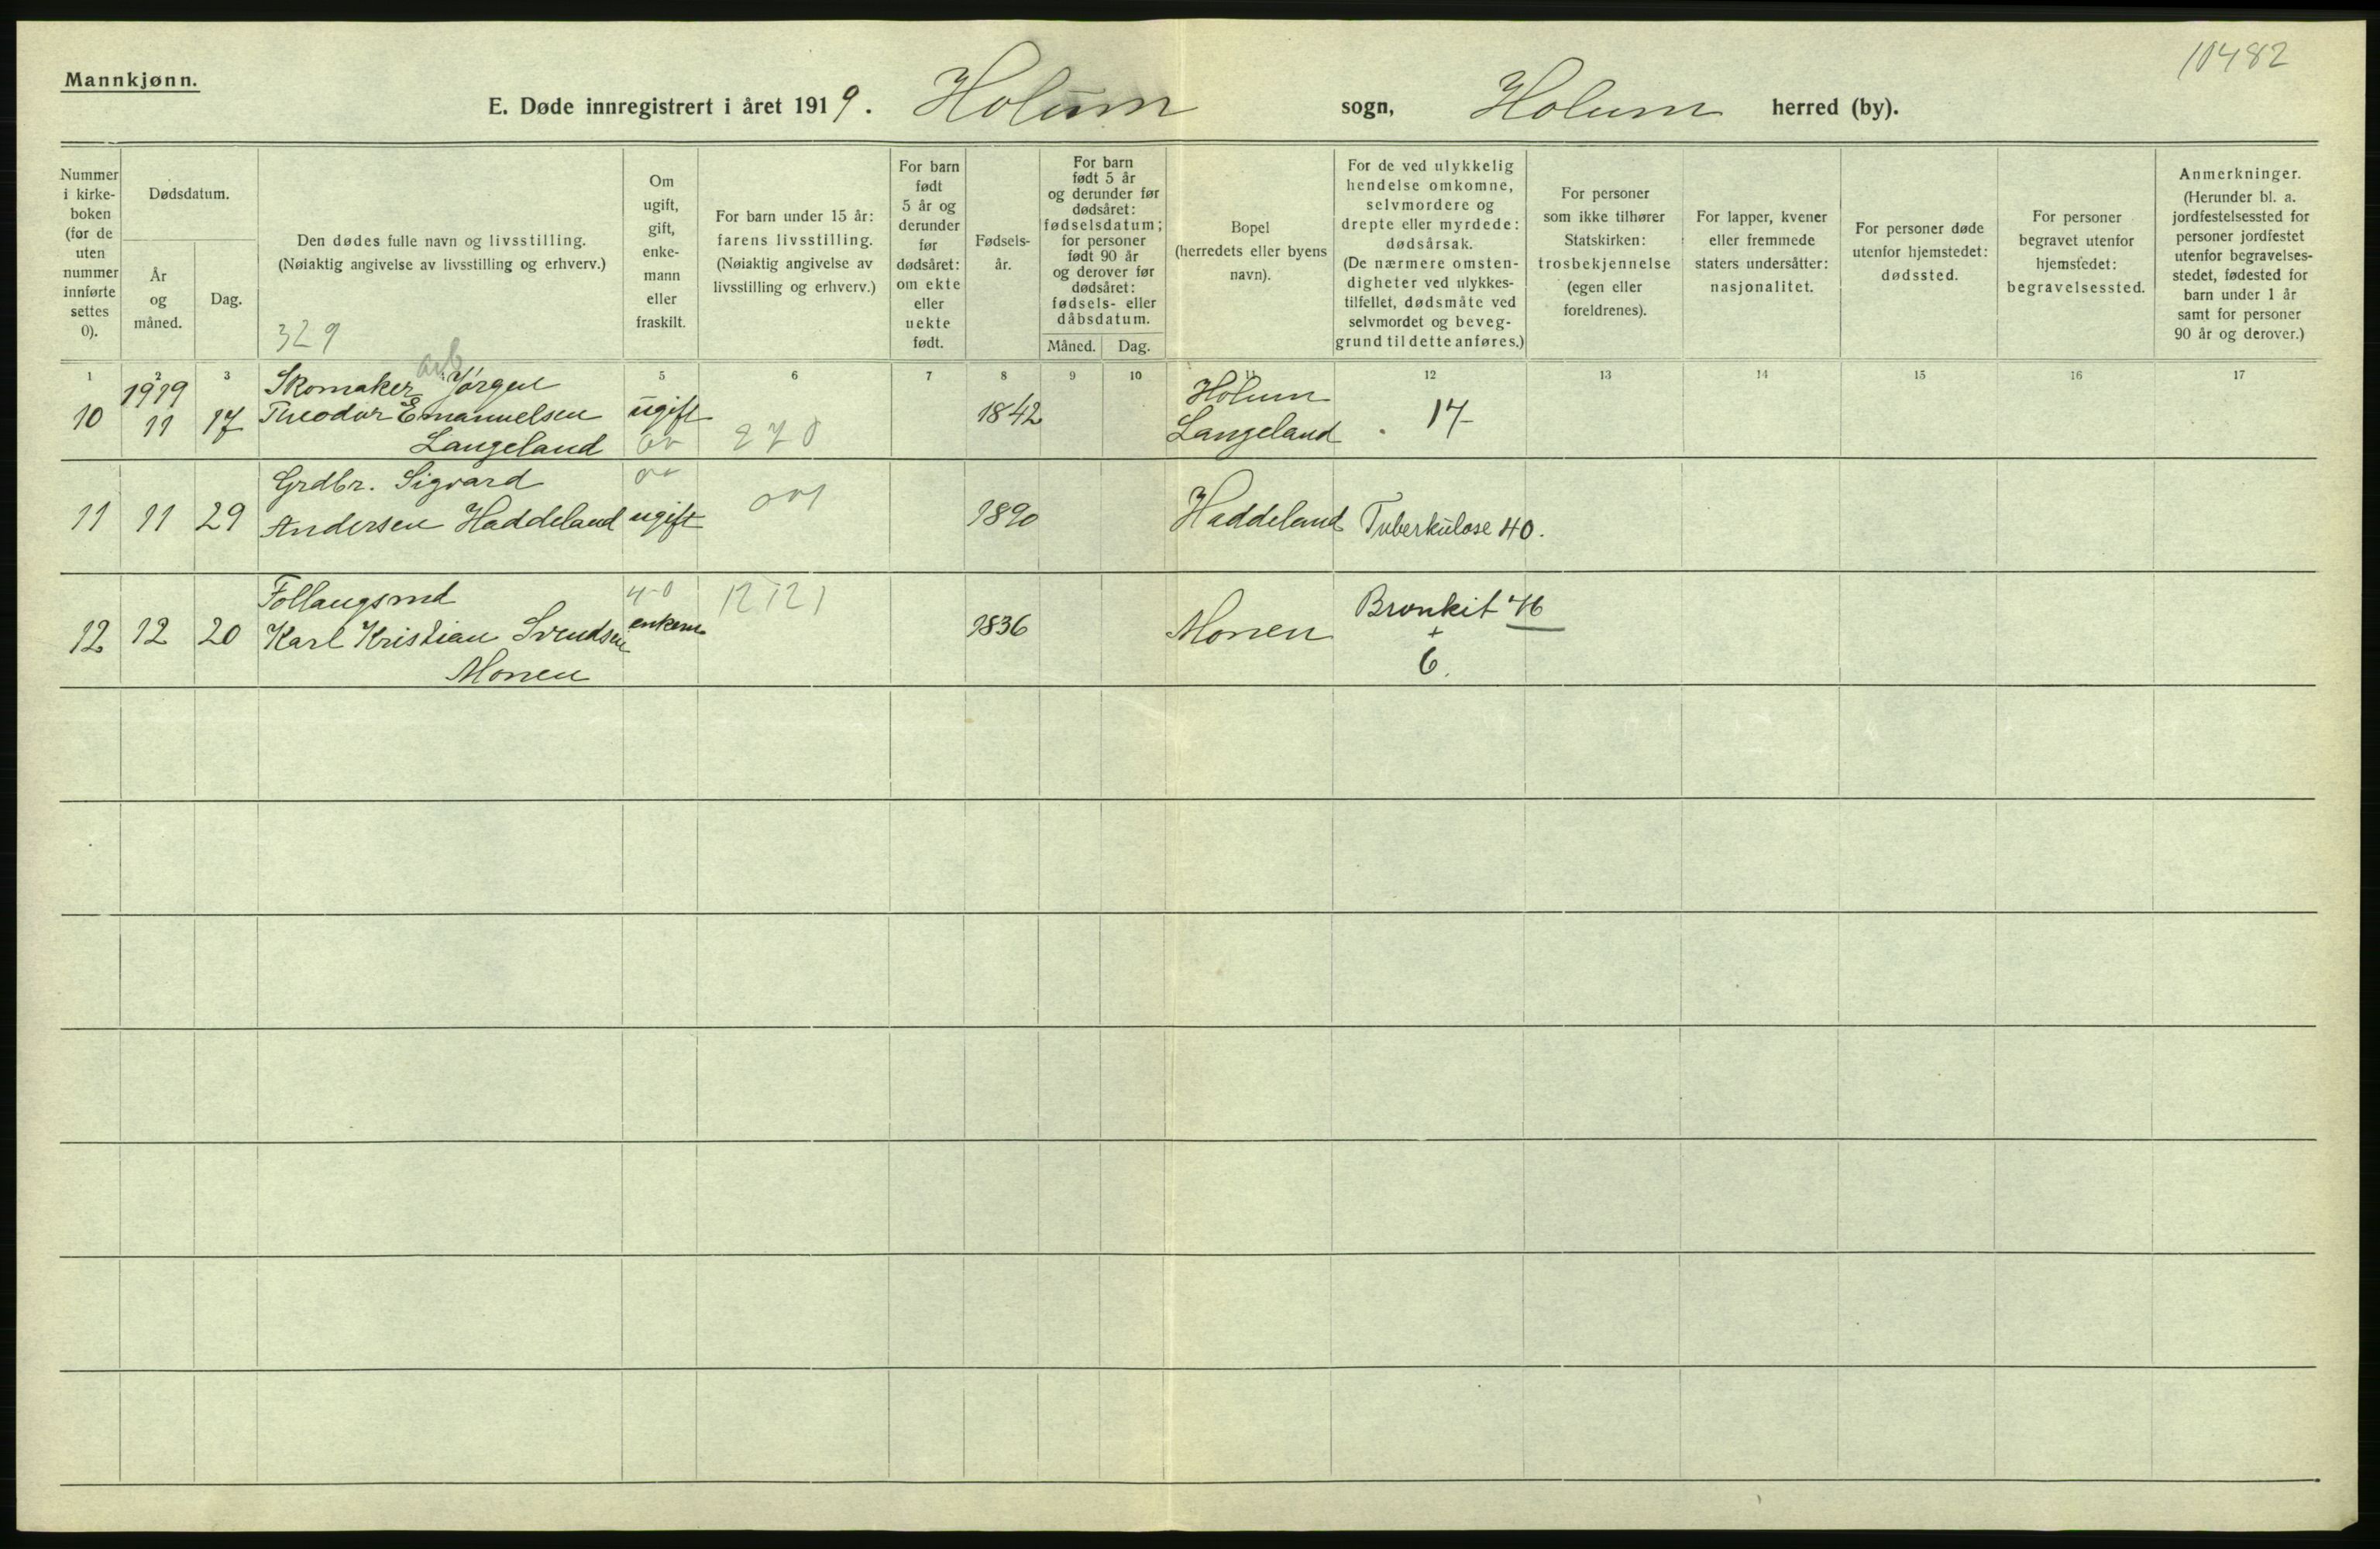 10482
Mannkjønn.
E. Døde innregistrert i året 1919. Holum sogn, Holum herred (by).
Nummer i kirke- boken (for de uten nummer innførte settes 0).
Dødsdatum.
År og måned.
Dag.
Den dødes fulle navn og livsstilling.
(Nøiaktig angivelse av livsstilling og erhverv.)
329
Om ugift, gift, enke- mann eller fraskilt.
For barn under 15 år: farens livsstilling. (Nøiaktig angivelse av livsstilling og erhverv.)
For barn født 5 år og derunder før dødsåret: om ekte eller uekte født.
Fødsels- år.
For barn født 5 år og derunder før dødsåret: fødselsdatum; for personer født 90 år og derover før dødsåret: fødsels- eller dåbsdatum.
Måned. Dag.
Bopel (herredets eller byens navn).
For de ved ulykkelig hendelse omkomne, selvmordere og drepte eller myrdede: dødsårsak. (De nærmere omsten- digheter ved ulykkes- tilfellet, dødsmåte ved selvmordet og beveg- grund til dette anføres.)
For personer som ikke tilhører Statskirken: trosbekjennelse (egen eller foreldrenes).
For lapper, kvener eller fremmede staters undersåtter: nasjonalitet.
For personer døde utenfor hjemstedet: dødssted.
For personer begravet utenfor hjemstedet: begravelsessted.
Anmerkninger. (Herunder bl. a. jordfestelsessted for personer jordfestet utenfor begravelses- stedet, fødested for barn under 1 år samt for personer 90 år og derover.)
1 2 3 5 6 7 8 9 10 11 12 13 14 15 16 17
1919 Skomaker arb Jörgen Holum
10 11 17 Theodor Emanuelsen ugift 1842 17
Langeland 270 Langeland
Grdbr. Sigvard
11 11 29 Andersen Haddeland ugift 1890 Haddeland Tuberkulose 40.
Follaugsmd 12121 Bronkit 46
12 12 20 Karl Kristian Svendsen enkem 1836 Monen +
Monen 6.